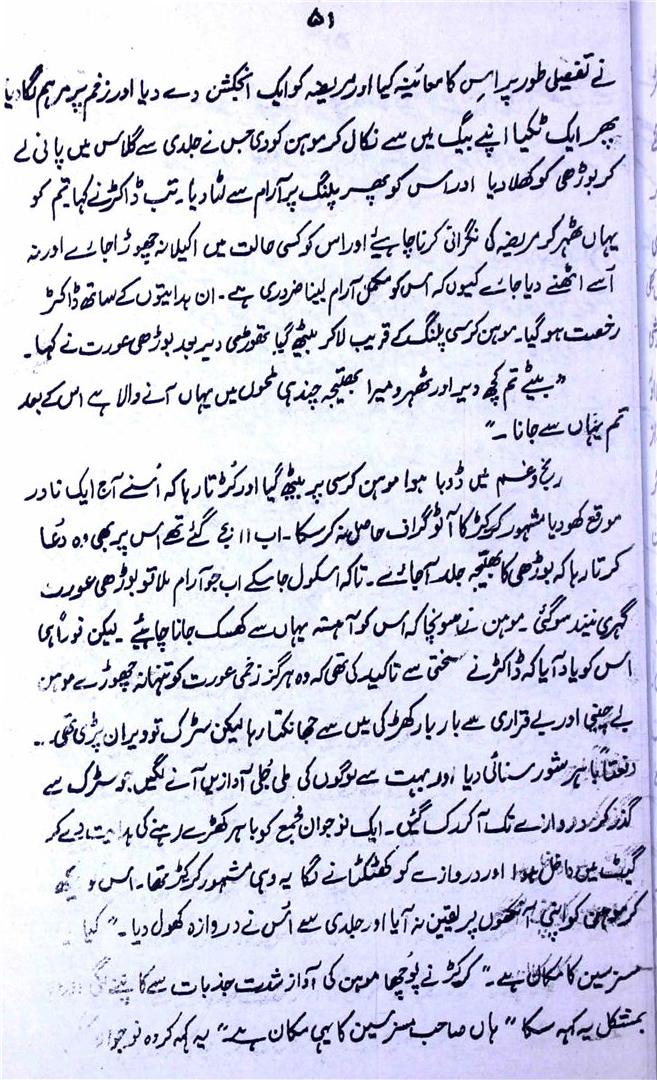 ۵۱
نے تفصیلی طور پر اس کا معائنہ کیا اور مریضہ کو ایک انجکشن دے دیا اور زخم پر مرہم لگا دیا
پھر ایک ٹکیا اپنے بیگ میں سے نکال کر موہن کو دی جس نے جلدی سے گلاس میں پانی لے
کر بوڑھی کو کھلا دیا اور اس کو پھر پلنگ پر آرام سے لٹا دیا۔ تب ڈاکٹر نے کہا تم کو
یہاں ٹھہر کر مریضہ کی نگرانی کرنا چاہیئے اور اس کو کسی حالت میں اکیلا نہ چھوڑا جائے اور نہ
اُسے اٹھنے دیا جائے کیوں کہ اس کو مکمل آرام لینا ضروری ہے۔ ان ہدایتوں کے ساتھ ڈاکٹر
رخصت ہو گیا۔ موہن کرسی پلنگ کے قریب لا کر بیٹھ گیا تھوڑی دیر بعد بوڑھی عورت نے کہا۔
"بیٹے تم کچھ دیر اور ٹھہرو میرا بھتیجہ چند ہی لمحوں میں یہاں آنے والا ہے اس کے بعد
تم یہاں سے جانا۔"
رنج و غم میں ڈوبا ہوا موہن کرسی پر بیٹھ گیا اور کُڑتا رہا کہ اُسنے آج ایک نادر
موقع کھو دیا مشہور کرکیٹر کا آٹو گراف حاصل نہ کر سکا۔ اب ۱۱ بج گئے تھے اس پر بھی وہ دُعا
کرتا رہا کہ بوڑھی کا بھتیجہ جلد آ جائے۔ تاکہ اسکول جا سکے اب جو آرام ملا تو بوڑھی عورت
گہری نیند سو گئی۔ موہن نے سونچا کہ اس کو آہستہ یہاں سے کھسک جانا چاہیئے لیکن فوراً ہی
اس کو یاد آیا کہ ڈاکٹر نے سختی سے تاکید کی تھی کہ وہ ہرگز زخمی عورت کو تنہا نہ چھوڑے موہن
بے چینی اور بے قراری سے بار بار کھڑکی میں سے جھانکتا رہا لیکن سڑک تو ویران پڑی تھی۔۔
دفعتاً باہر شور سنائی دیا اور بہت سے لوگوں کی ملی جُلی آوازیں آنے لگیں جو سڑک سے
گذر کر دروازے تک آ کر رک گئیں۔ ایک نوجوان مجمع کو باہر کھڑے رہنے کی ہدایت دے کر
گیٹ میں داخل ہوا اور دروازے کو کھٹکٹانے لگا یہ وہی مشہور کرکیٹر تھا۔ اس
کر موہن کو اپنی آنکھوں پر یقین نہ آیا اور جلدی سے اُس نے دروازہ کھول دیا۔ "کیا
مسز سین کا مکان ہے۔" کرکیٹر نے پُوچھا موہن کی آواز شدت جذبات سے کانپنے لگی
بمشکل یہ کہہ سکا "ہاں صاحب مسز سین کا یہی مکان ہے" یہ کہہ کر وہ نوجوان